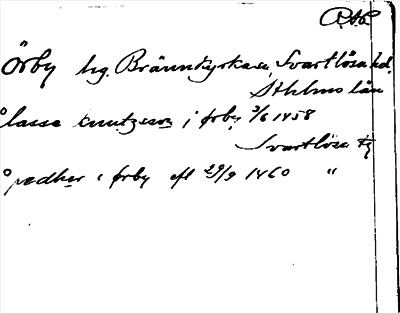 R.A.
Örby hg. Brännkyrka sn, Svartlösa hd.
Sthlms län
lasse knutzson i ørby 3/6 1458
Svartlösa
pædher i ørby eft 29/9 1460 "